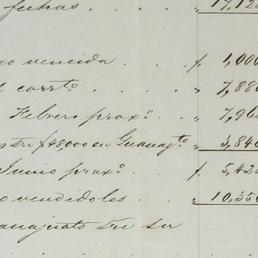 fechas . . . . " 17,12
go vencida . . . ƒ 1,000
l corrto. . . . " 7,88
Febrero proxo. . . " 7,96
ƒ 48,000 en Guanajto " 3,84
Junio proxo. . . ƒ 5,42
o vendidoles . . " 10,350
anajuato